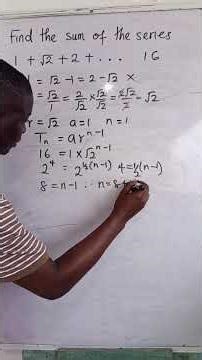 Find the sum of the series
1 + √2 + 2 + . . . 16
1 = √2 - 1 = 2 - √2 ×
= √2/1 = 2/√2 × √2/√2 = 2√2/2 = √2
r = √2 a = 1 n = 1
Tn = ar^n-1
16 = 1 × √2^n-1
2^4 = 2^½(n-1) 4 = ½(n-1)
8 = n-1 ∴ n = 8 +